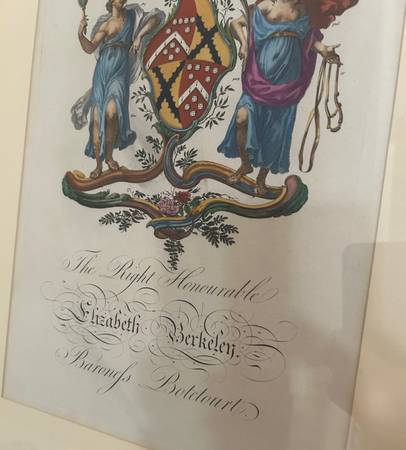 The Right Honourable
Elizabeth Berkeley.
Baroneſs Botetourt.